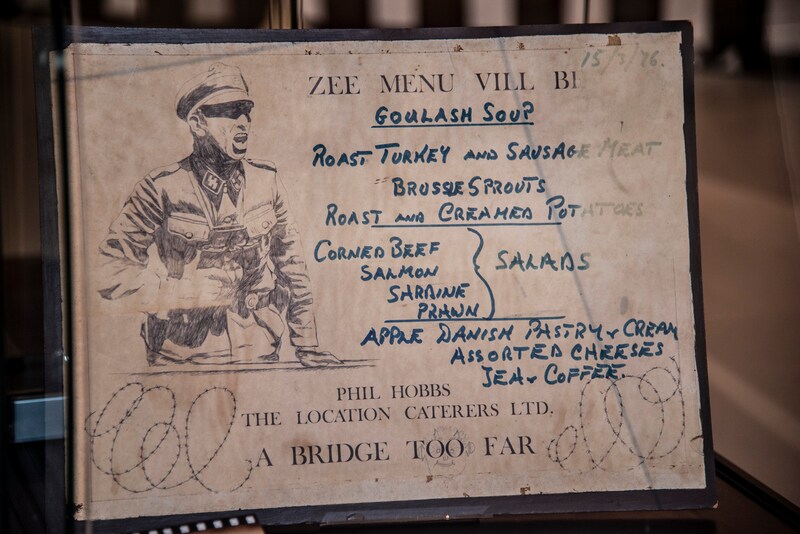 15/3/76.
ZEE MENU VILL BE
GOULASH SOUP
ROAST TURKEY AND SAUSAGE MEAT
BRUSSEL SPROUTS
ROAST AND CREAMED POTATOES
CORNED BEEF
SALMON
SARDINE
PRAWN
SALADS
APPLE DANISH PASTRY & CREAM
ASSORTED CHEESES
TEA & COFFEE.
PHIL HOBBS
THE LOCATION CATERERS LTD.
A BRIDGE TOO FAR